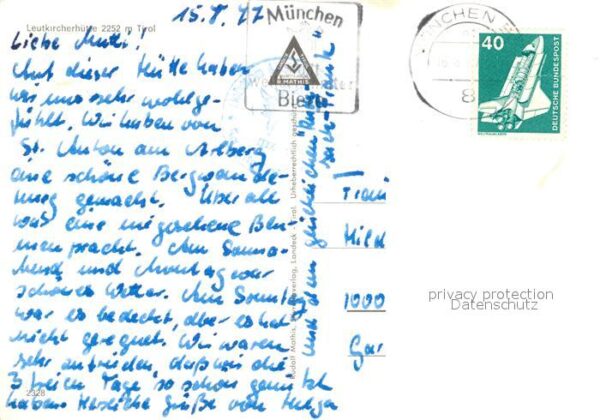 15.8.77
Leutkircherhütte 2252 m Tirol
Liebe Mutti!
Auf dieser Hütte haben
wir uns sehr wohlge-
fühlt. Wir haben von
St. Anton am Arlberg
eine schöne Bergwande-
rung gemacht. Überall
war eine Blu-
menpracht. Am Sonna-
bend und Montag war
schönes Wetter. Am Sonntag
war es bedeckt, aber es hat
nicht geregnet. Wir waren
sehr zufrieden, daß wir die
3 freien Tage so schön genutzt
haben. Herzliche Grüße von Helga
und dem gleichen
2328
Rudolf Mathis, Landeck - Tirol. Urheberrechtlich geschützt
R. MATHIS
München
Bier
MÜNCHEN
8
40
DEUTSCHE BUNDESPOST
Hild
1000
privacy protection
Datenschutz